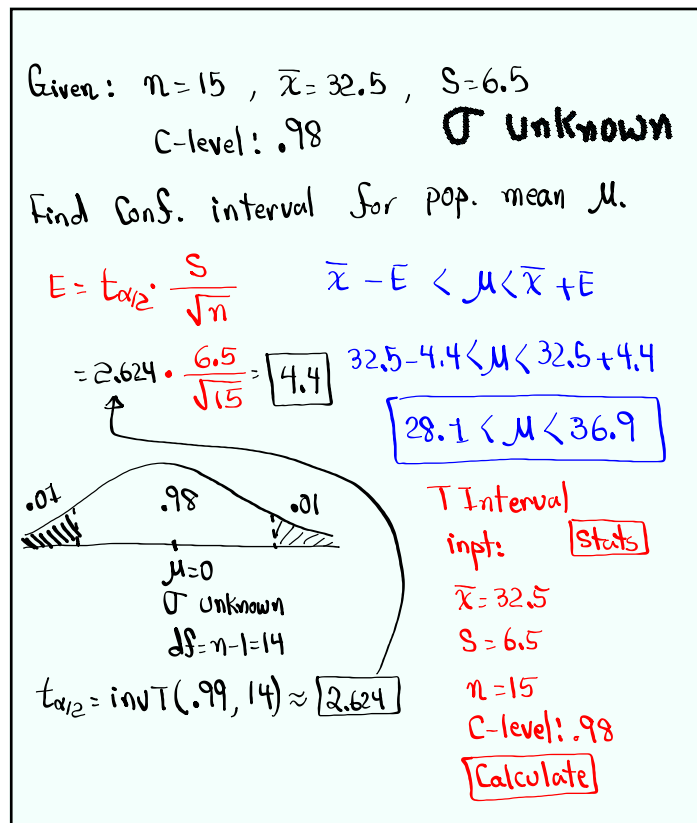 Given: n=15 , x̄=32.5 , S=6.5
C-level: .98 σ unknown
Find Conf. interval for pop. mean μ.
E = t_{α/2} · S/√n
x̄ - E < μ < x̄ + E
= 2.624 · 6.5/√15 = 4.4
32.5-4.4 < μ < 32.5+4.4
28.1 < μ < 36.9
.01 .98 .01
μ=0
σ unknown
df=n-1=14
t_{α/2} = invT(.99, 14) ≈ 2.624
T Interval
inpt: Stats
x̄=32.5
S=6.5
n=15
C-level: .98
Calculate